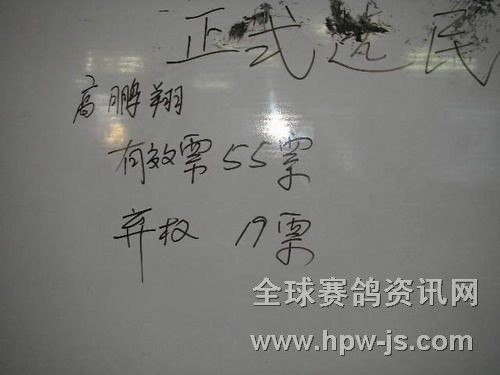 正式选民
高鹏翔
有效票 55票
弃权 19票
全球赛鸽资讯网
www.hpw-js.com